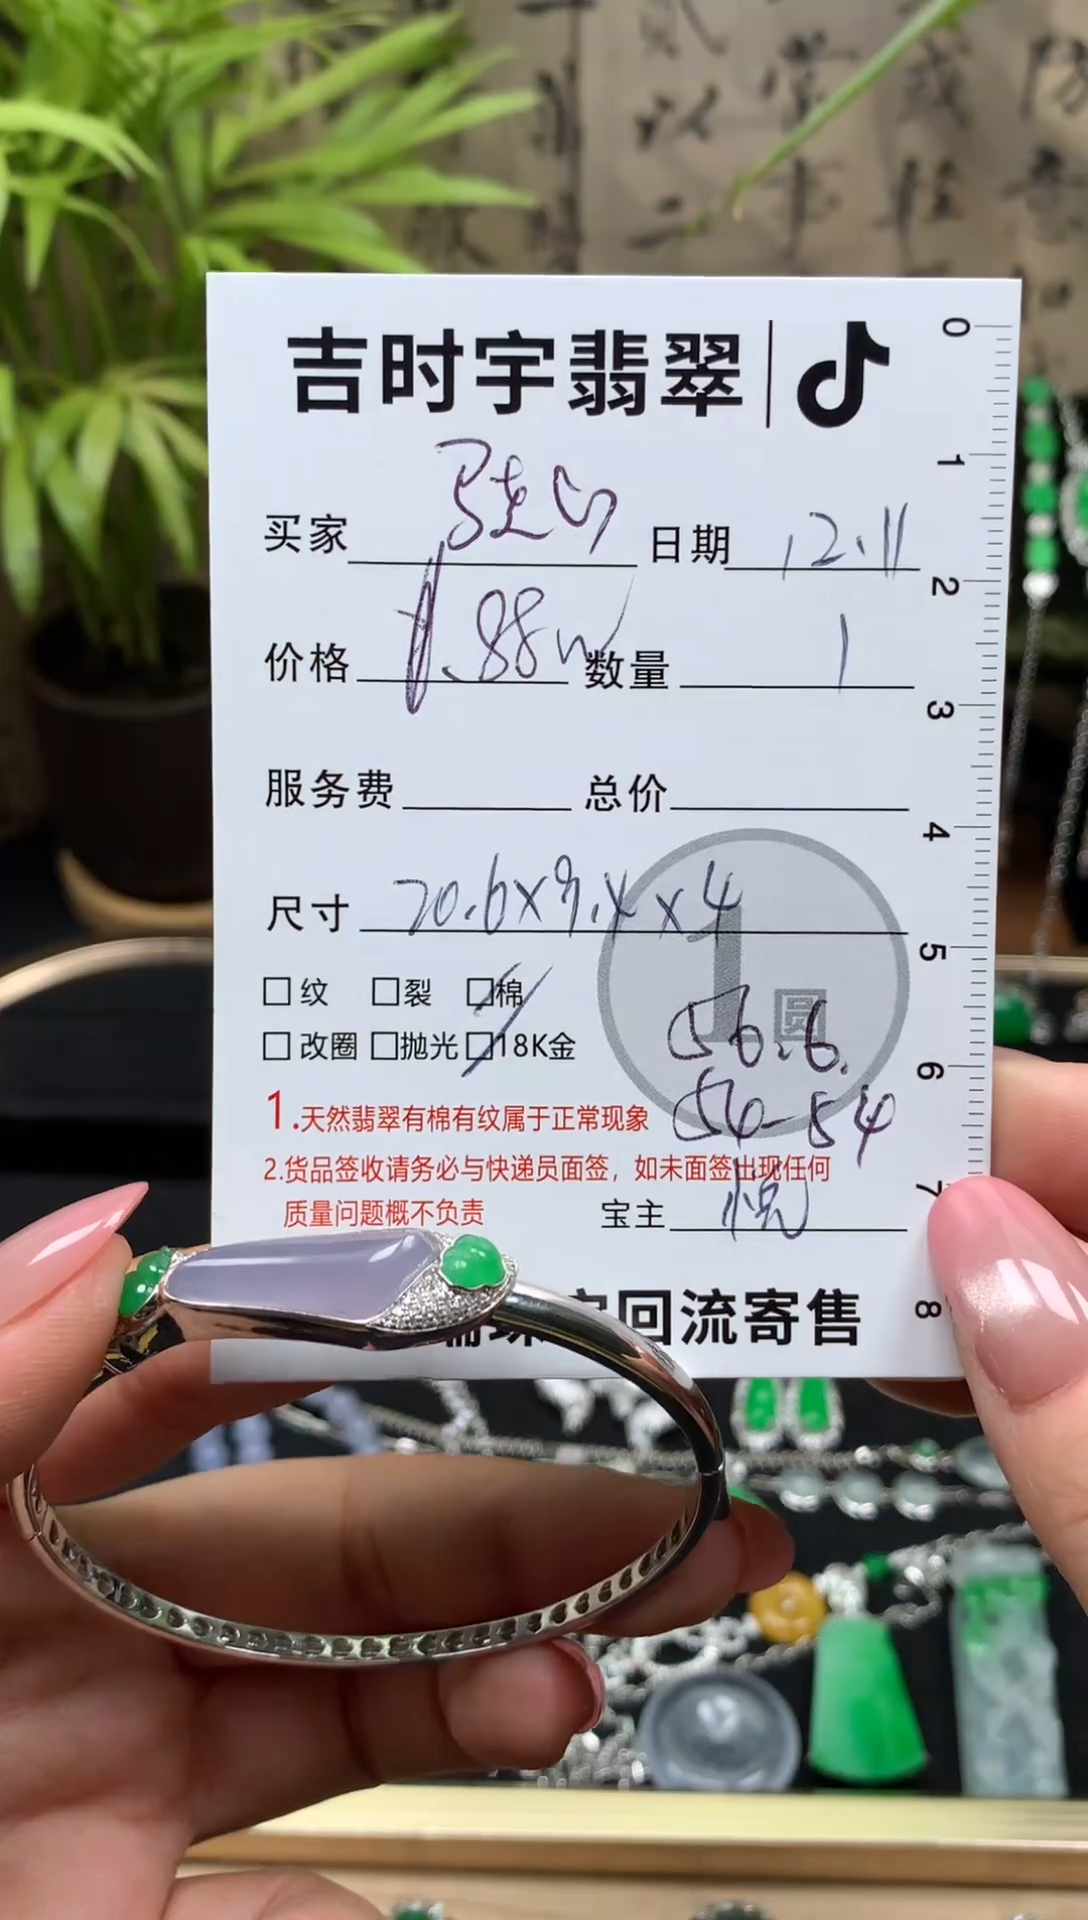 吉时宇翡翠
买家 日期 12.11
价格 .88w 数量 1
服务费 总价
尺寸 20.6×9.4×4
1圆
□纹 □裂 □棉
56.6
□改圈 □抛光 □18K金
54-54
1.天然翡翠有棉有纹属于正常现象
2.货品签收请务必与快递员面签，如未面签出现任何
质量问题概不负责
宝主 悦
回流寄售
0
1
2
3
4
5
6
7
8